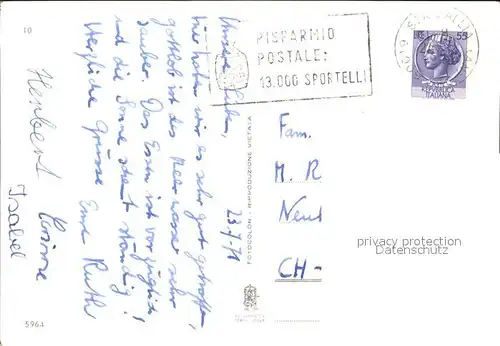 10
Unsere Lieben,
hier haben wir es sehr gut getroffen,
gottlob ist das Meerwasser sehr
sauber. Das Essen ist vorzüglich,
und die Sonne scheint ständig!
Herzliche Grüsse Eure Ruth
Herbert Corinne
Isabel
23.7.71
5964
FOTOCOLOR - RIPRODUZIONE VIETATA
RISPARMIO
POSTALE:
13.000 SPORTELLI
L. 55
REPUBBLICA
ITALIANA
Fam.
M. R
Neu
CH-
privacy protection
AnsichtskartenVersand.com